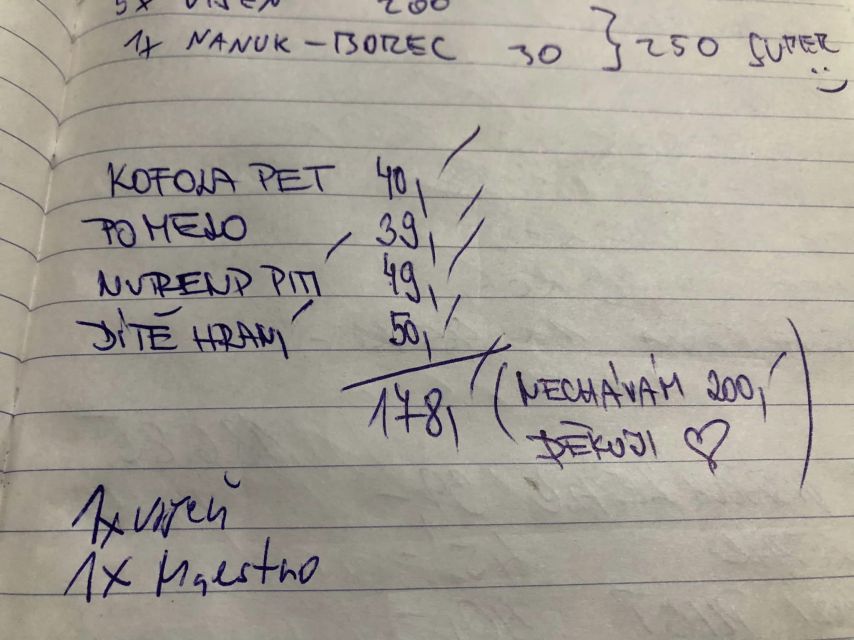 5x VIŠEŇ 200
1x NANUK-BOREC 30 } 250 SUPER :)
KOFOLA PET 40,/
POMELO 39,/
NUTREND PITÍ 49,/
DÍTĚ HRANÍ 50,/
178,/ (NECHÁVÁM 200,/
DĚKUJI ♡)
1x višeň
1x Maestro